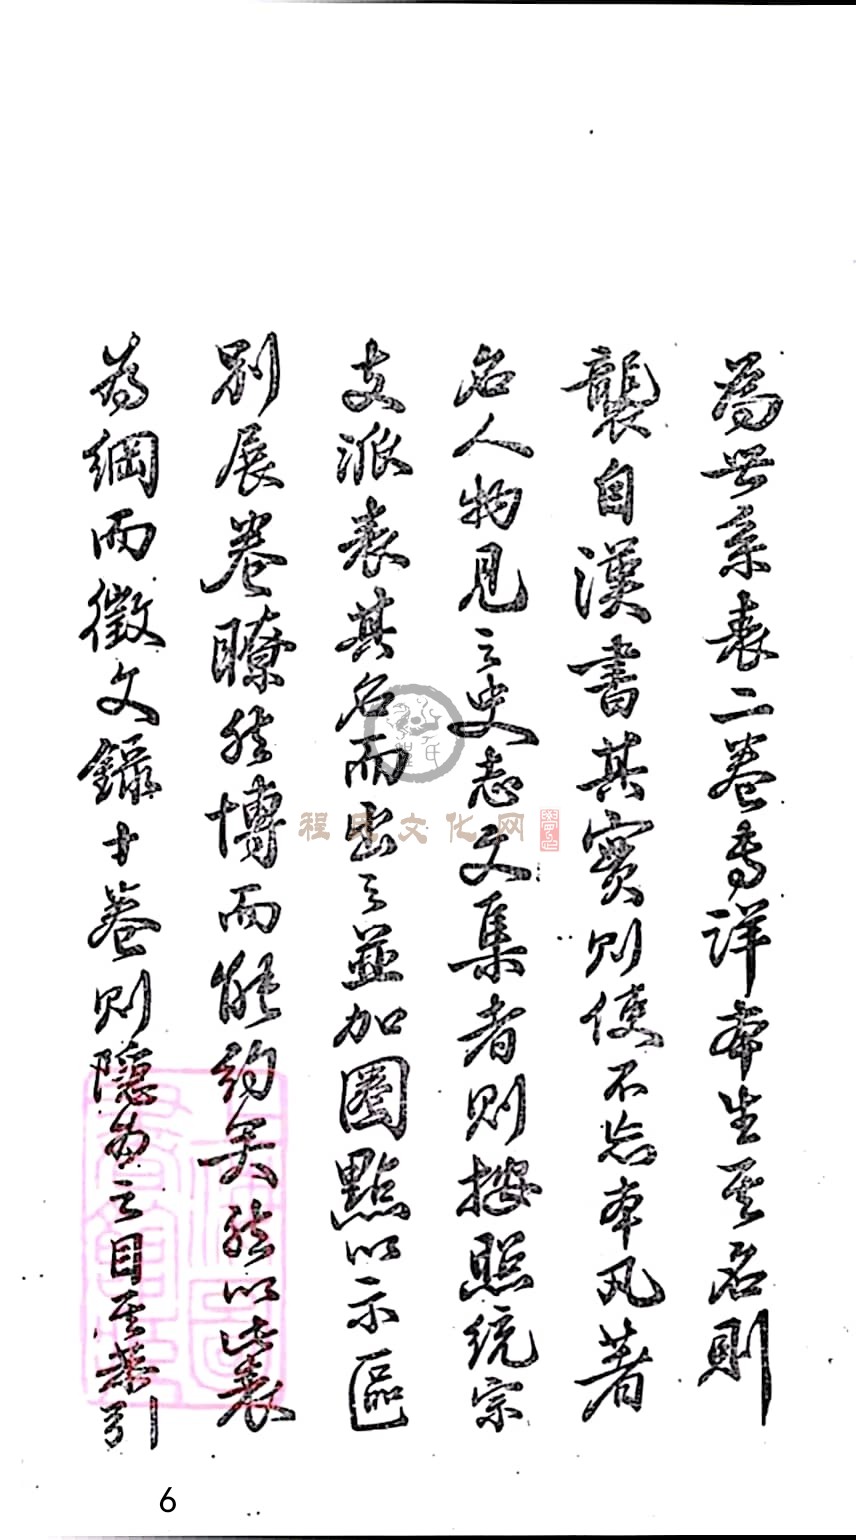 為世系表二卷専詳本生其名則
襲自漢書其實則使不忘本凡著
名人物見之史志文集者則按照統宗
支派表其名而出之並加圈點以示區
別展卷瞭然博而能約矣然以此表
為綱而徵文錄十卷則隱為之目其恭引
程氏文化网
6